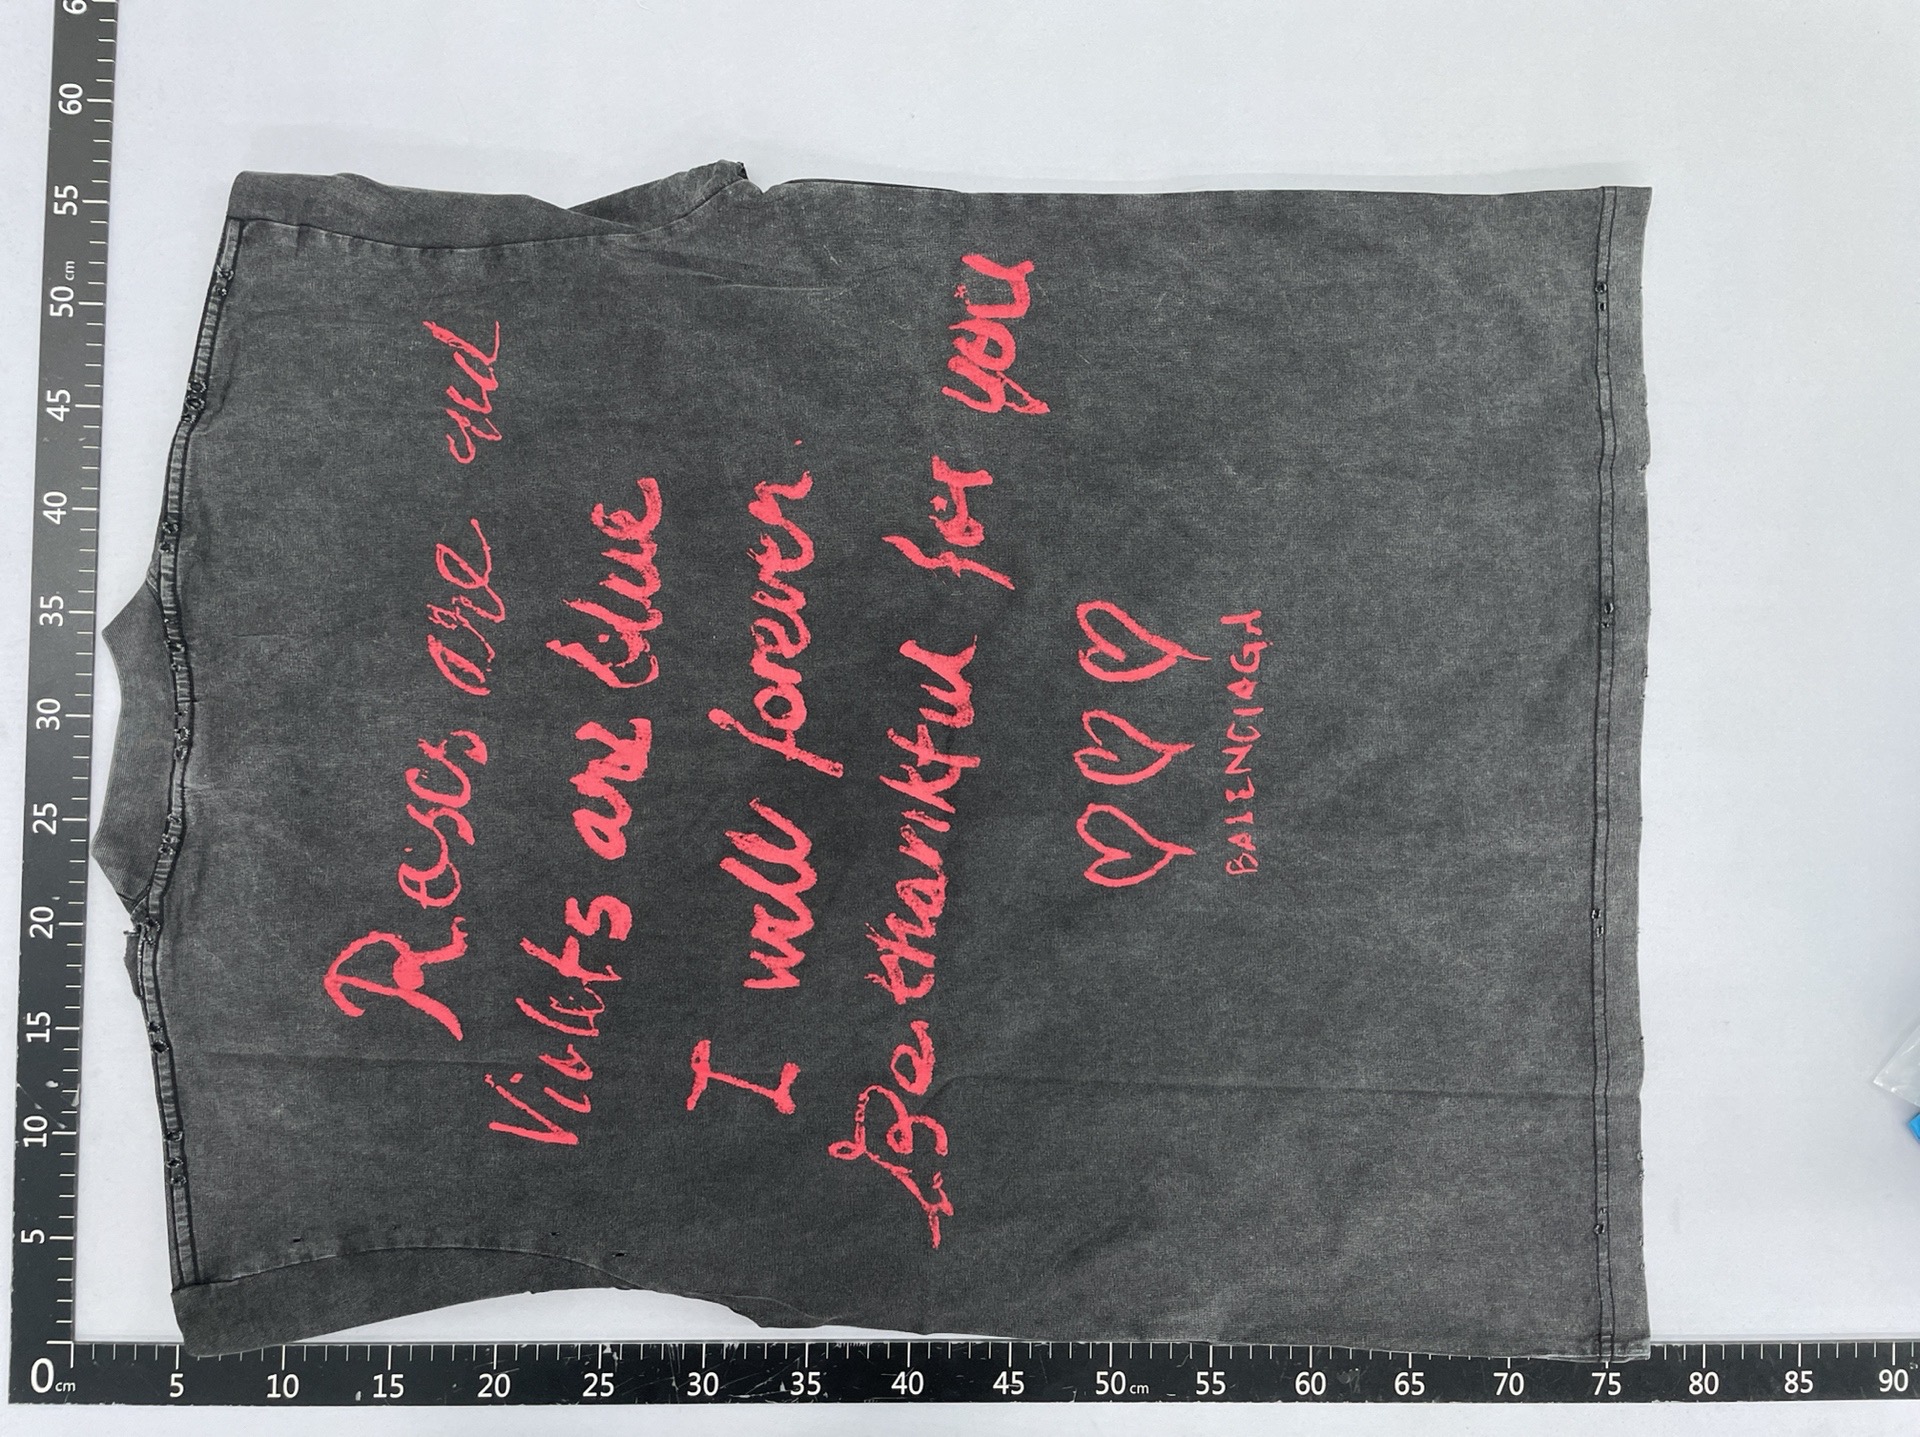 Roses are red
Violets are blue
I will forever
Be thankful for you
BALENCIAGA
60
55
50 cm
45
40
35
30
25
20
15
10
5
0 cm
5
10
15
20
25
30
35
40
45
50 cm
55
60
65
70
75
80
85
90